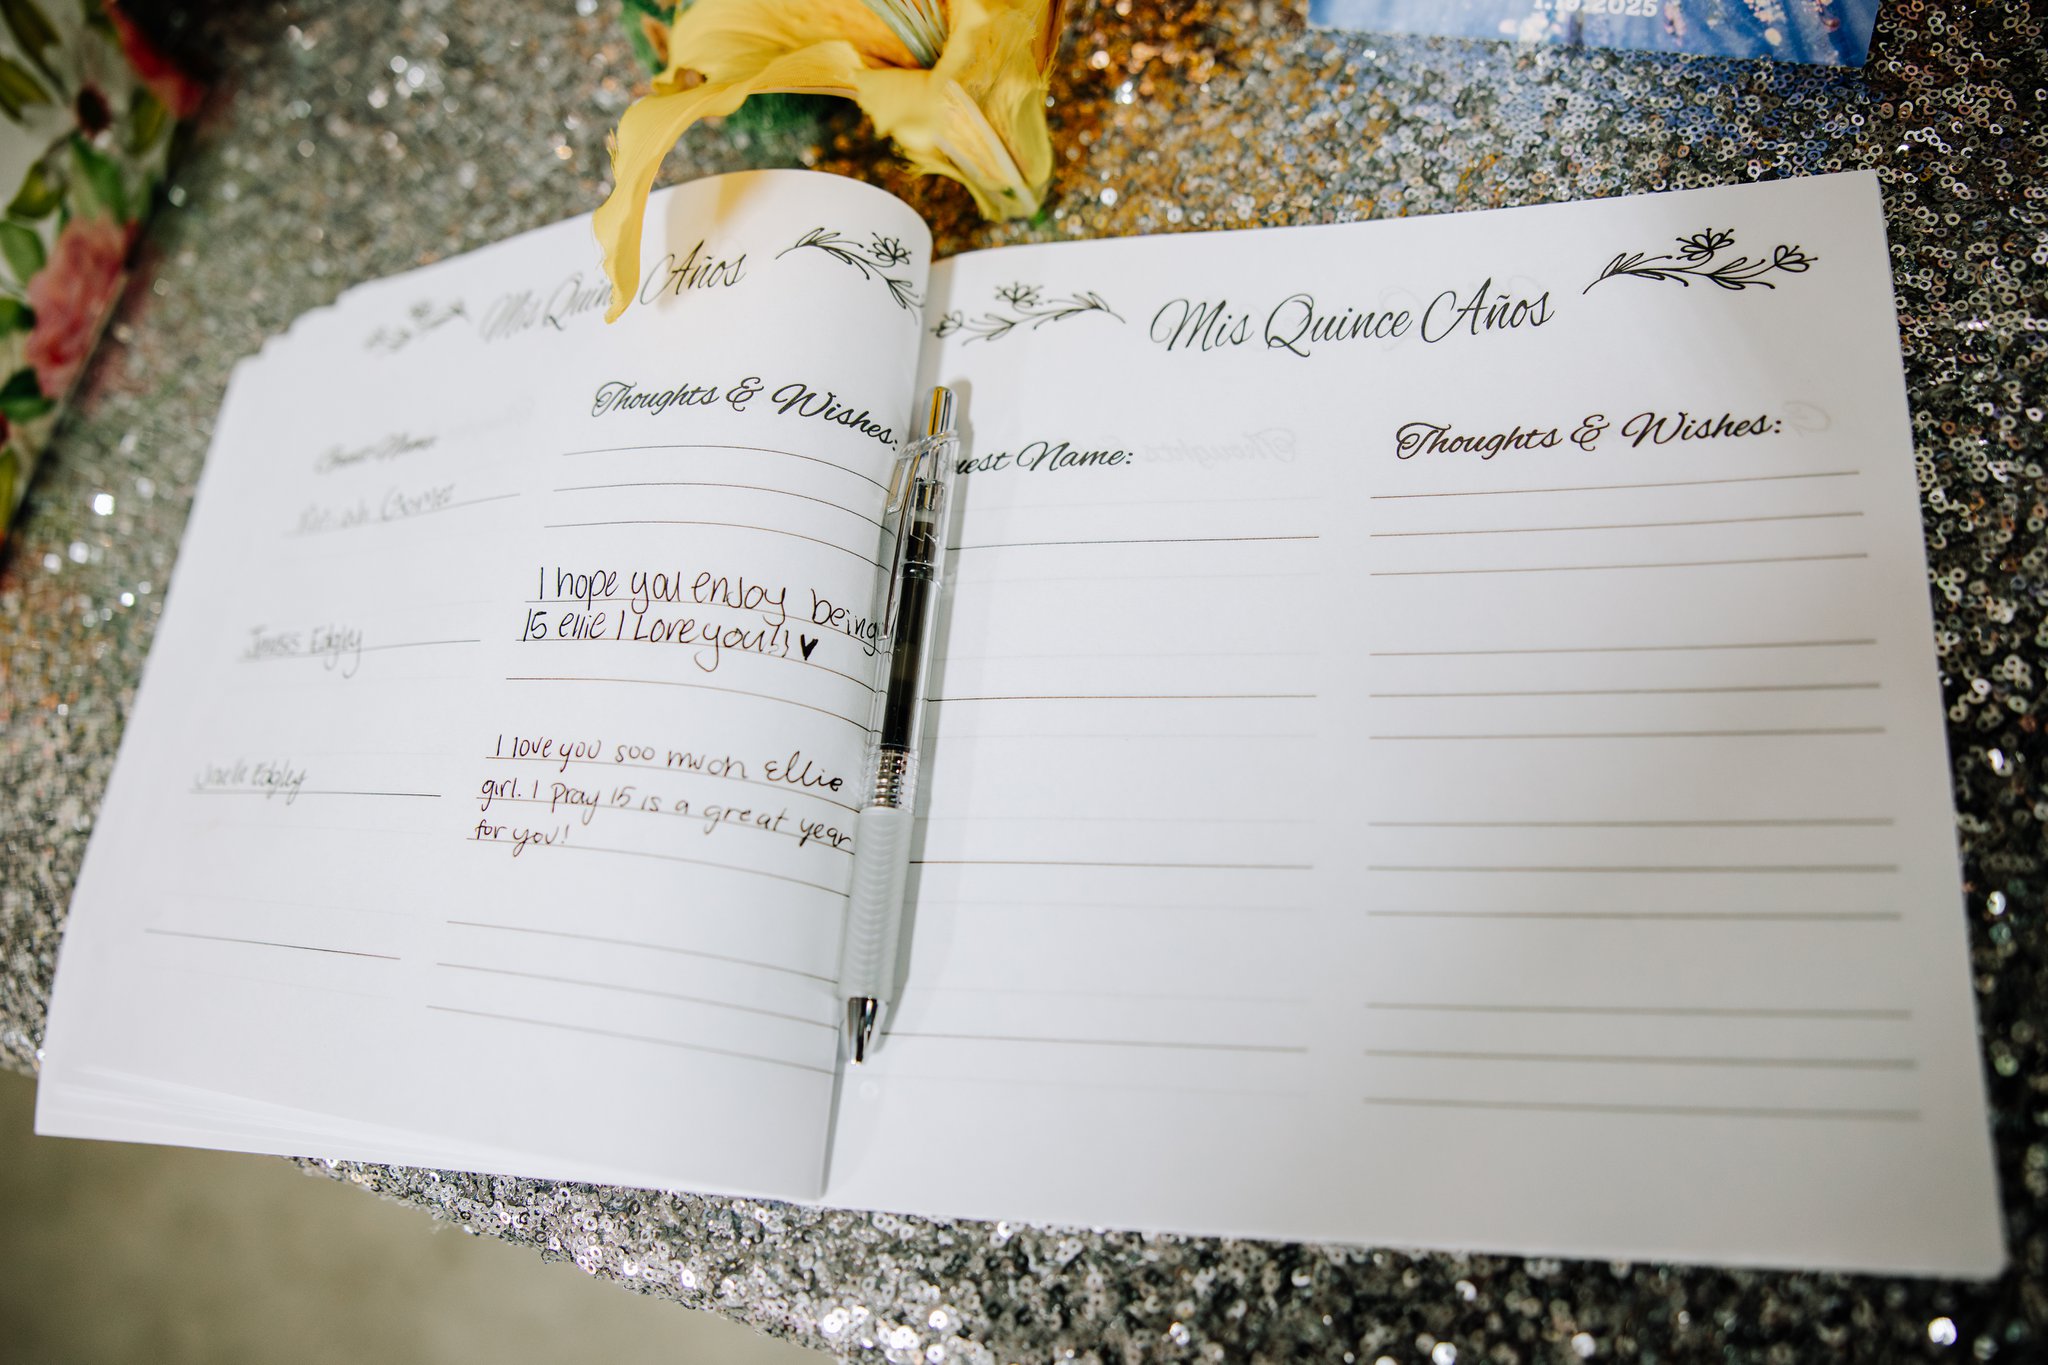 2025
Mis Quince Años
Guest Name
Thoughts & Wishes:
Gomez
Edgley
I hope you enjoy being
15 ellie I Love you!!! ♥
Edgley
I love you soo much Ellie
girl. I pray 15 is a great year
for you!
Mis Quince Años
Guest Name:
Thoughts & Wishes: